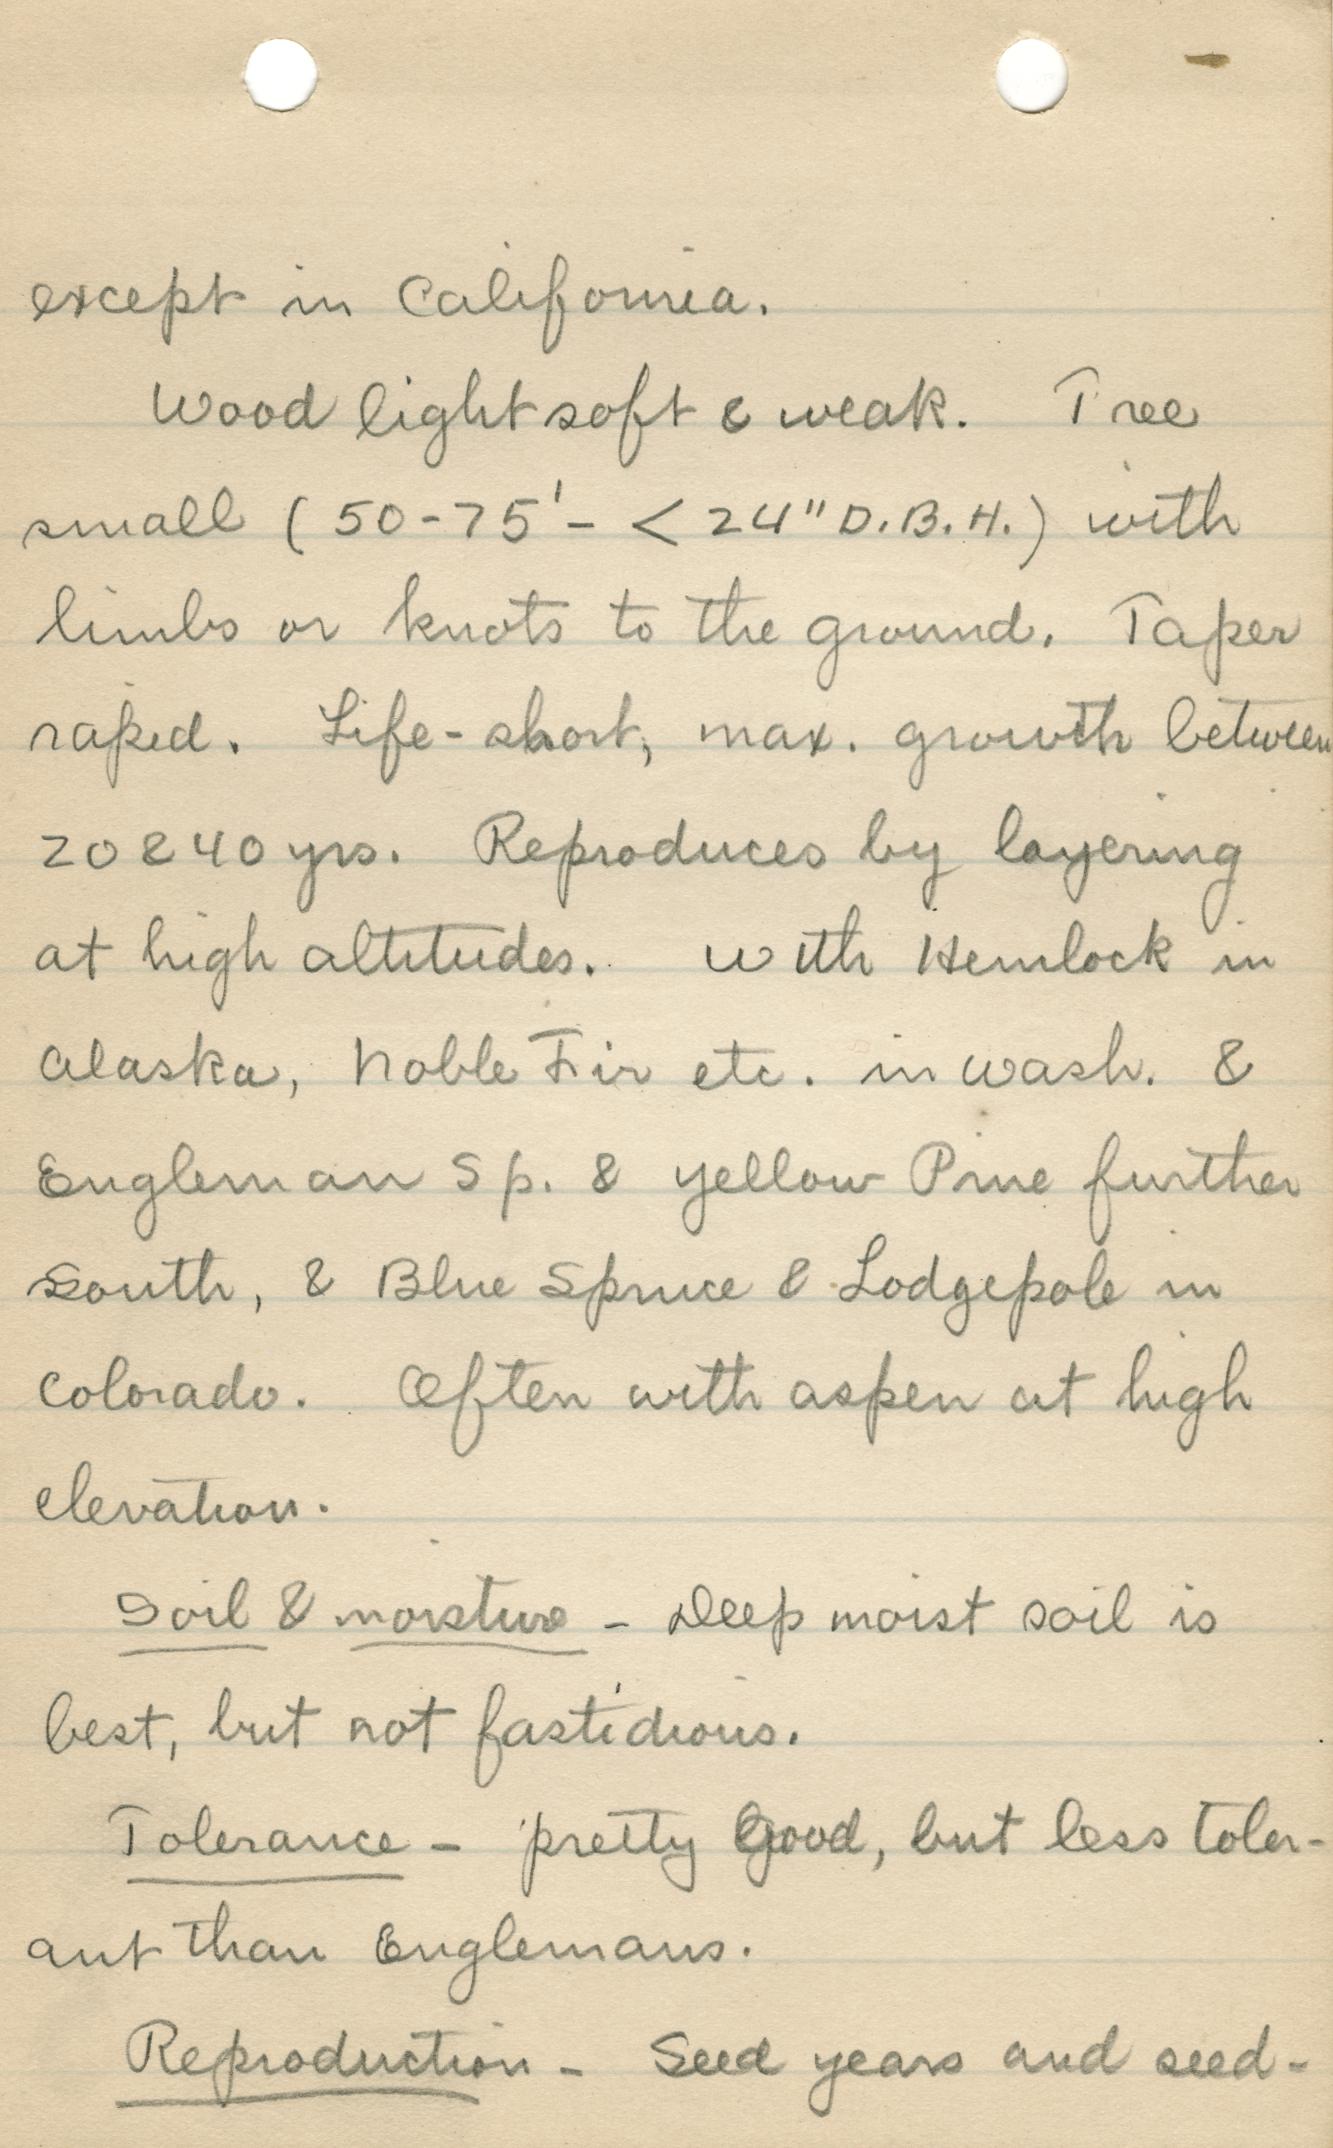 except in California.
Wood light soft & weak. Tree
small (50-75' - < 24" D.B.H.) with
limbs or knots to the ground. Taper
rapid. Life - short, max. growth between
20 & 40 yrs. Reproduces by layering
at high altitudes. With Hemlock in
Alaska, Noble Fir etc. in Wash. &
Engleman Sp. & yellow Pine further
south, & Blue Spruce & Lodgepole in
Colorado. Often with aspen at high
elevation.
Soil & moisture - Deep moist soil is
best, but not fastidious.
Tolerance - pretty good, but less toler-
ant than Englemans.
Reproduction - Seed years and seed-